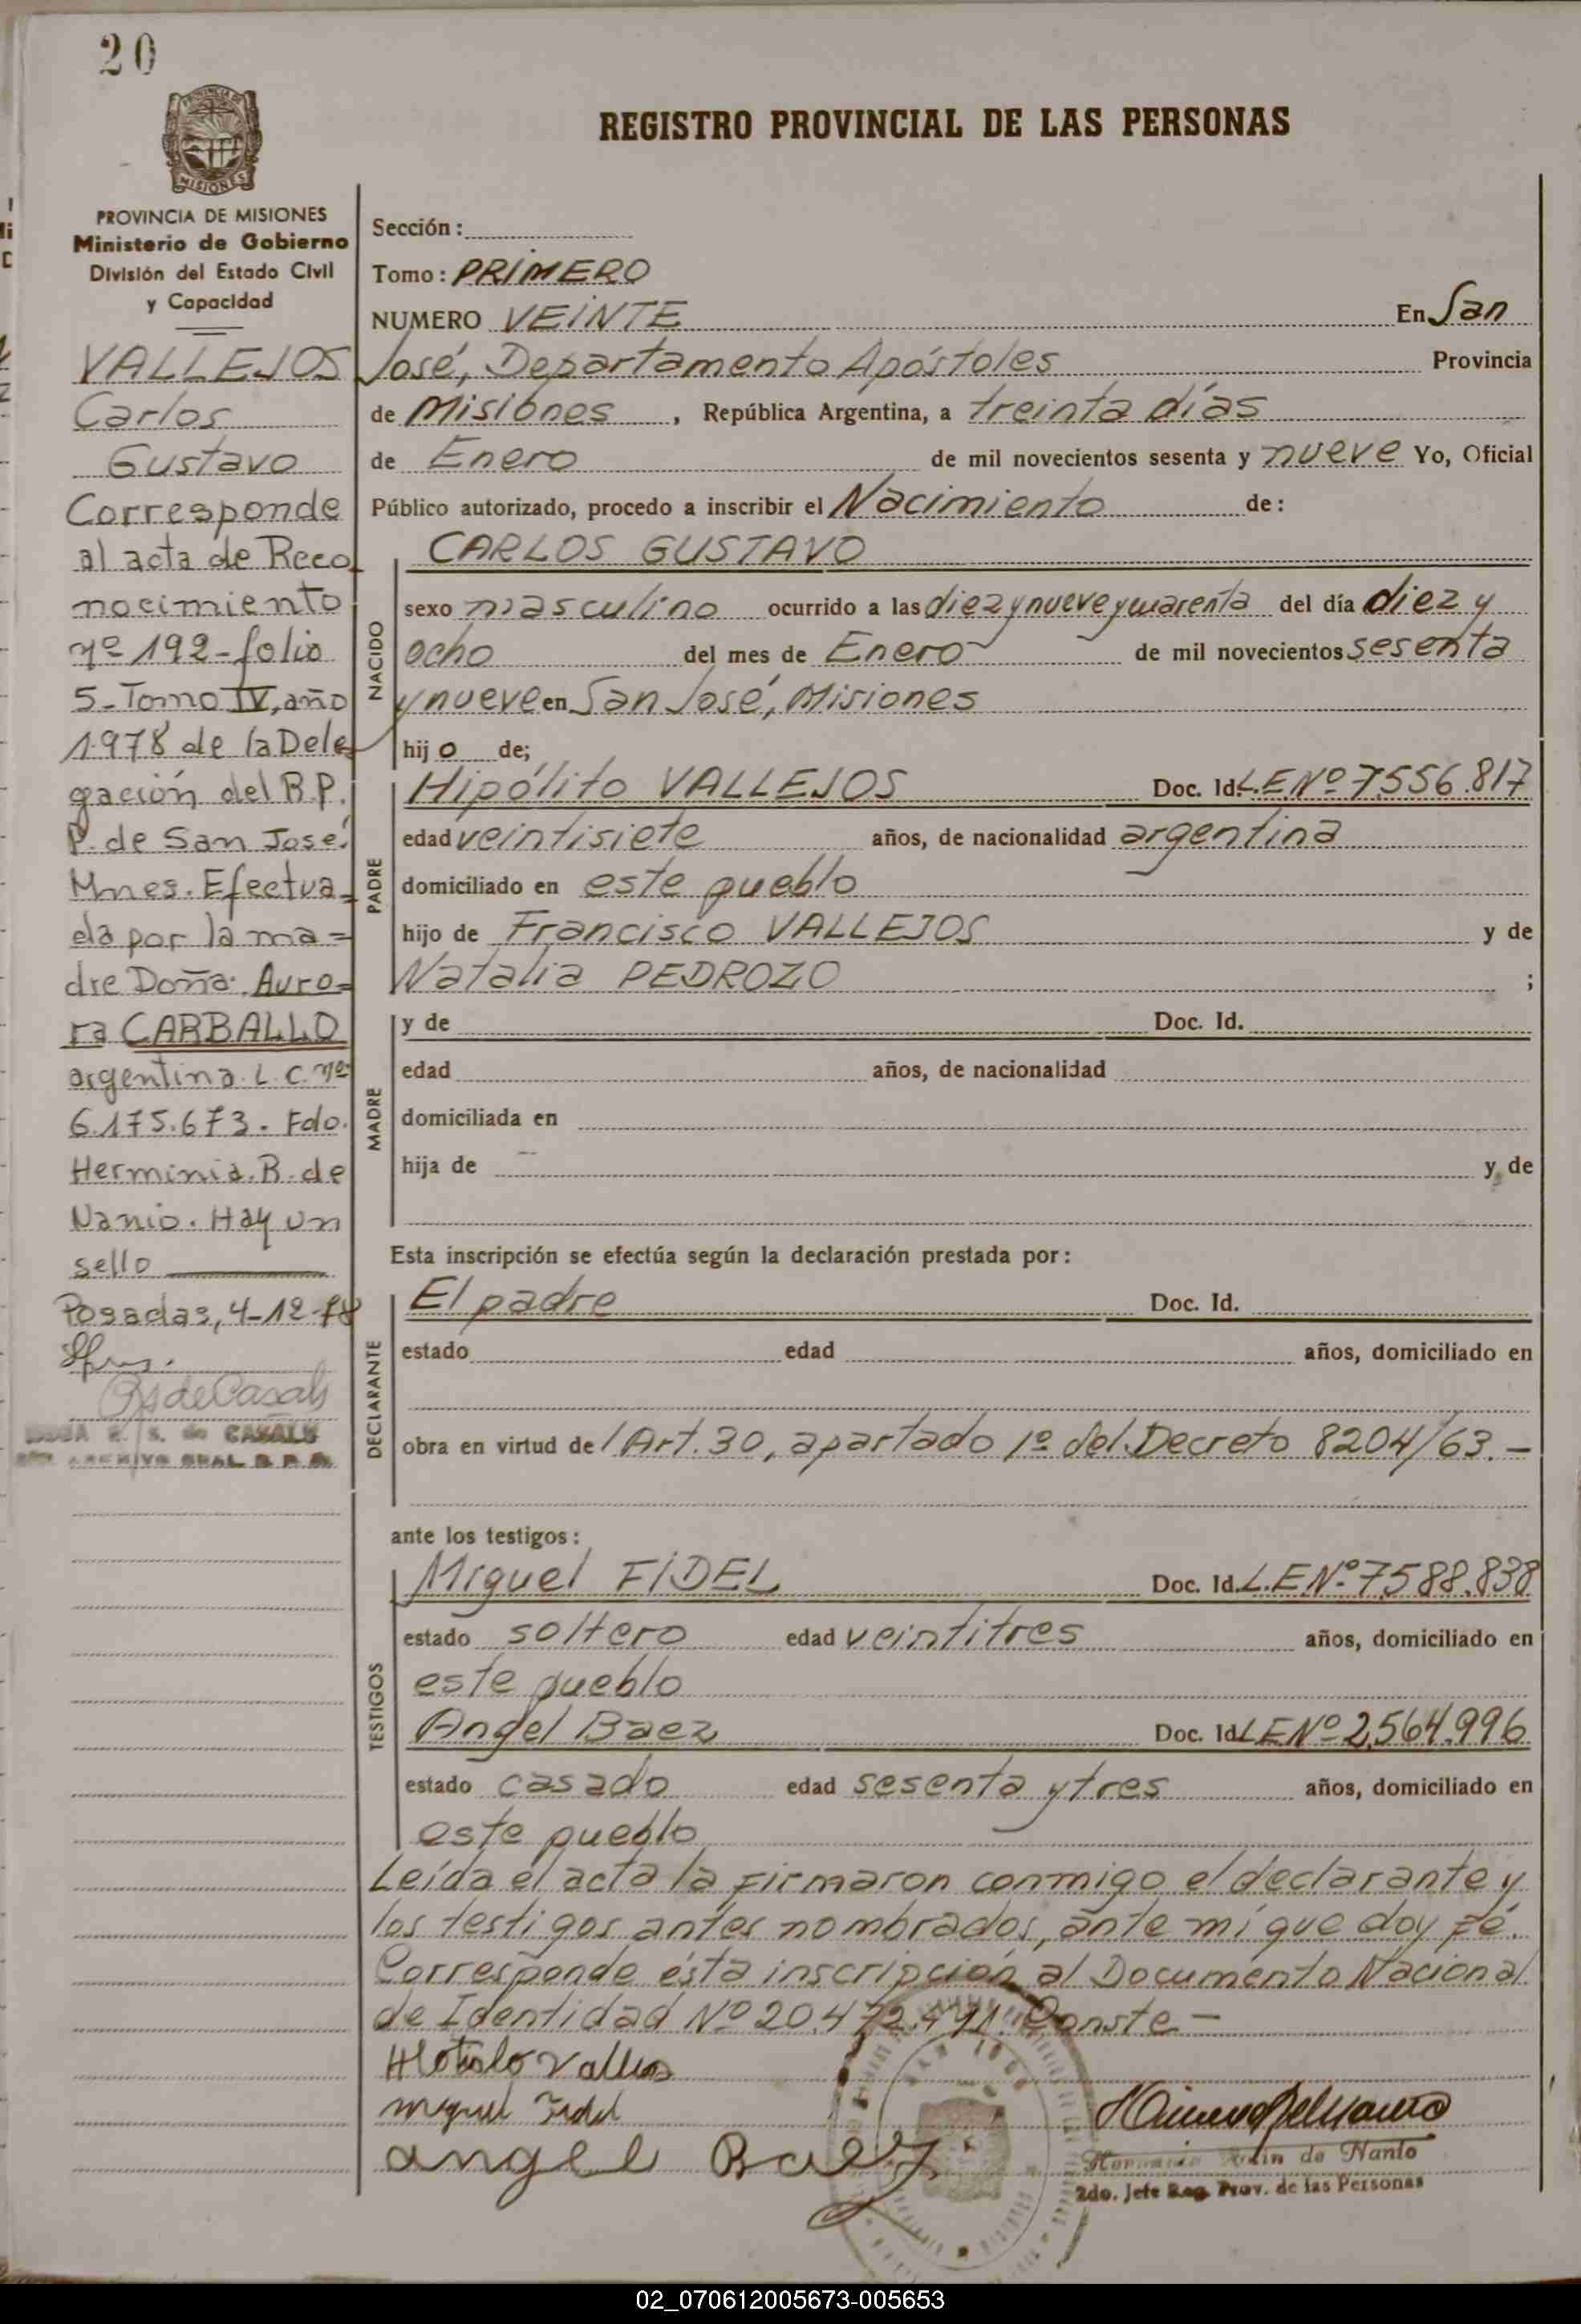 20
PROVINCIA DE MISIONES
Ministerio de Gobierno
División del Estado Civil
y Capacidad
VALLEJOS
Carlos
Gustavo
Corresponde
al acta de Reco
nocimiento
nº 192-folio
5-Tomo IV, año
1978 de la Dele
gación del R.P.
P. de San José.
Mnes. Efectua=
da por la ma=
dre Doña. Auro=
ra CARBALLO
argentina. L.C. nº
6.175.673. Fdo.
Herminia. R. de
Nanio. Hay un
sello
Posadas, 4-12-78
S. de CASALS
ARCHIVO GRAL. R.P.P.
REGISTRO PROVINCIAL DE LAS PERSONAS
Sección:
Tomo: PRIMERO
NUMERO VEINTE En San
José, Departamento Apóstoles Provincia
de Misiones, República Argentina, a treinta días
de Enero de mil novecientos sesenta y nueve Yo, Oficial
Público autorizado, procedo a inscribir el Nacimiento de:
NACIDO
CARLOS GUSTAVO
sexo masculino ocurrido a las diez y nueve y cuarenta del día diez y
ocho del mes de Enero de mil novecientos sesenta
y nueve en San José, Misiones
hijo de;
PADRE
Hipólito VALLEJOS Doc. Id. L.E Nº 7.556.817
edad veintisiete años, de nacionalidad argentina
domiciliado en este pueblo
hijo de Francisco VALLEJOS y de
Natalia PEDROZO ;
MADRE
y de Doc. Id.
edad años, de nacionalidad
domiciliada en
hija de y de
Esta inscripción se efectúa según la declaración prestada por:
DECLARANTE
El padre Doc. Id.
estado edad años, domiciliado en
obra en virtud del Art. 30, apartado 1º del Decreto 8204/63.-
ante los testigos:
TESTIGOS
Miguel FIDEL Doc. Id. L.E.Nº 7.588.838
estado soltero edad veintitres años, domiciliado en
este pueblo
Angel Baez Doc. Id. LE Nº 2.564.996
estado casado edad sesenta y tres años, domiciliado en
este pueblo
Leída el acta la firmaron conmigo el declarante y
los testigos antes nombrados, ante mí que doy fé.
Corresponde ésta inscripción al Documento Nacional
de Identidad Nº 20.472.491. Conste-
Miguel Fidel
angel Baez
de Nanio
2do. Jefe Reg. Prov. de las Personas
02_070612005673-005653